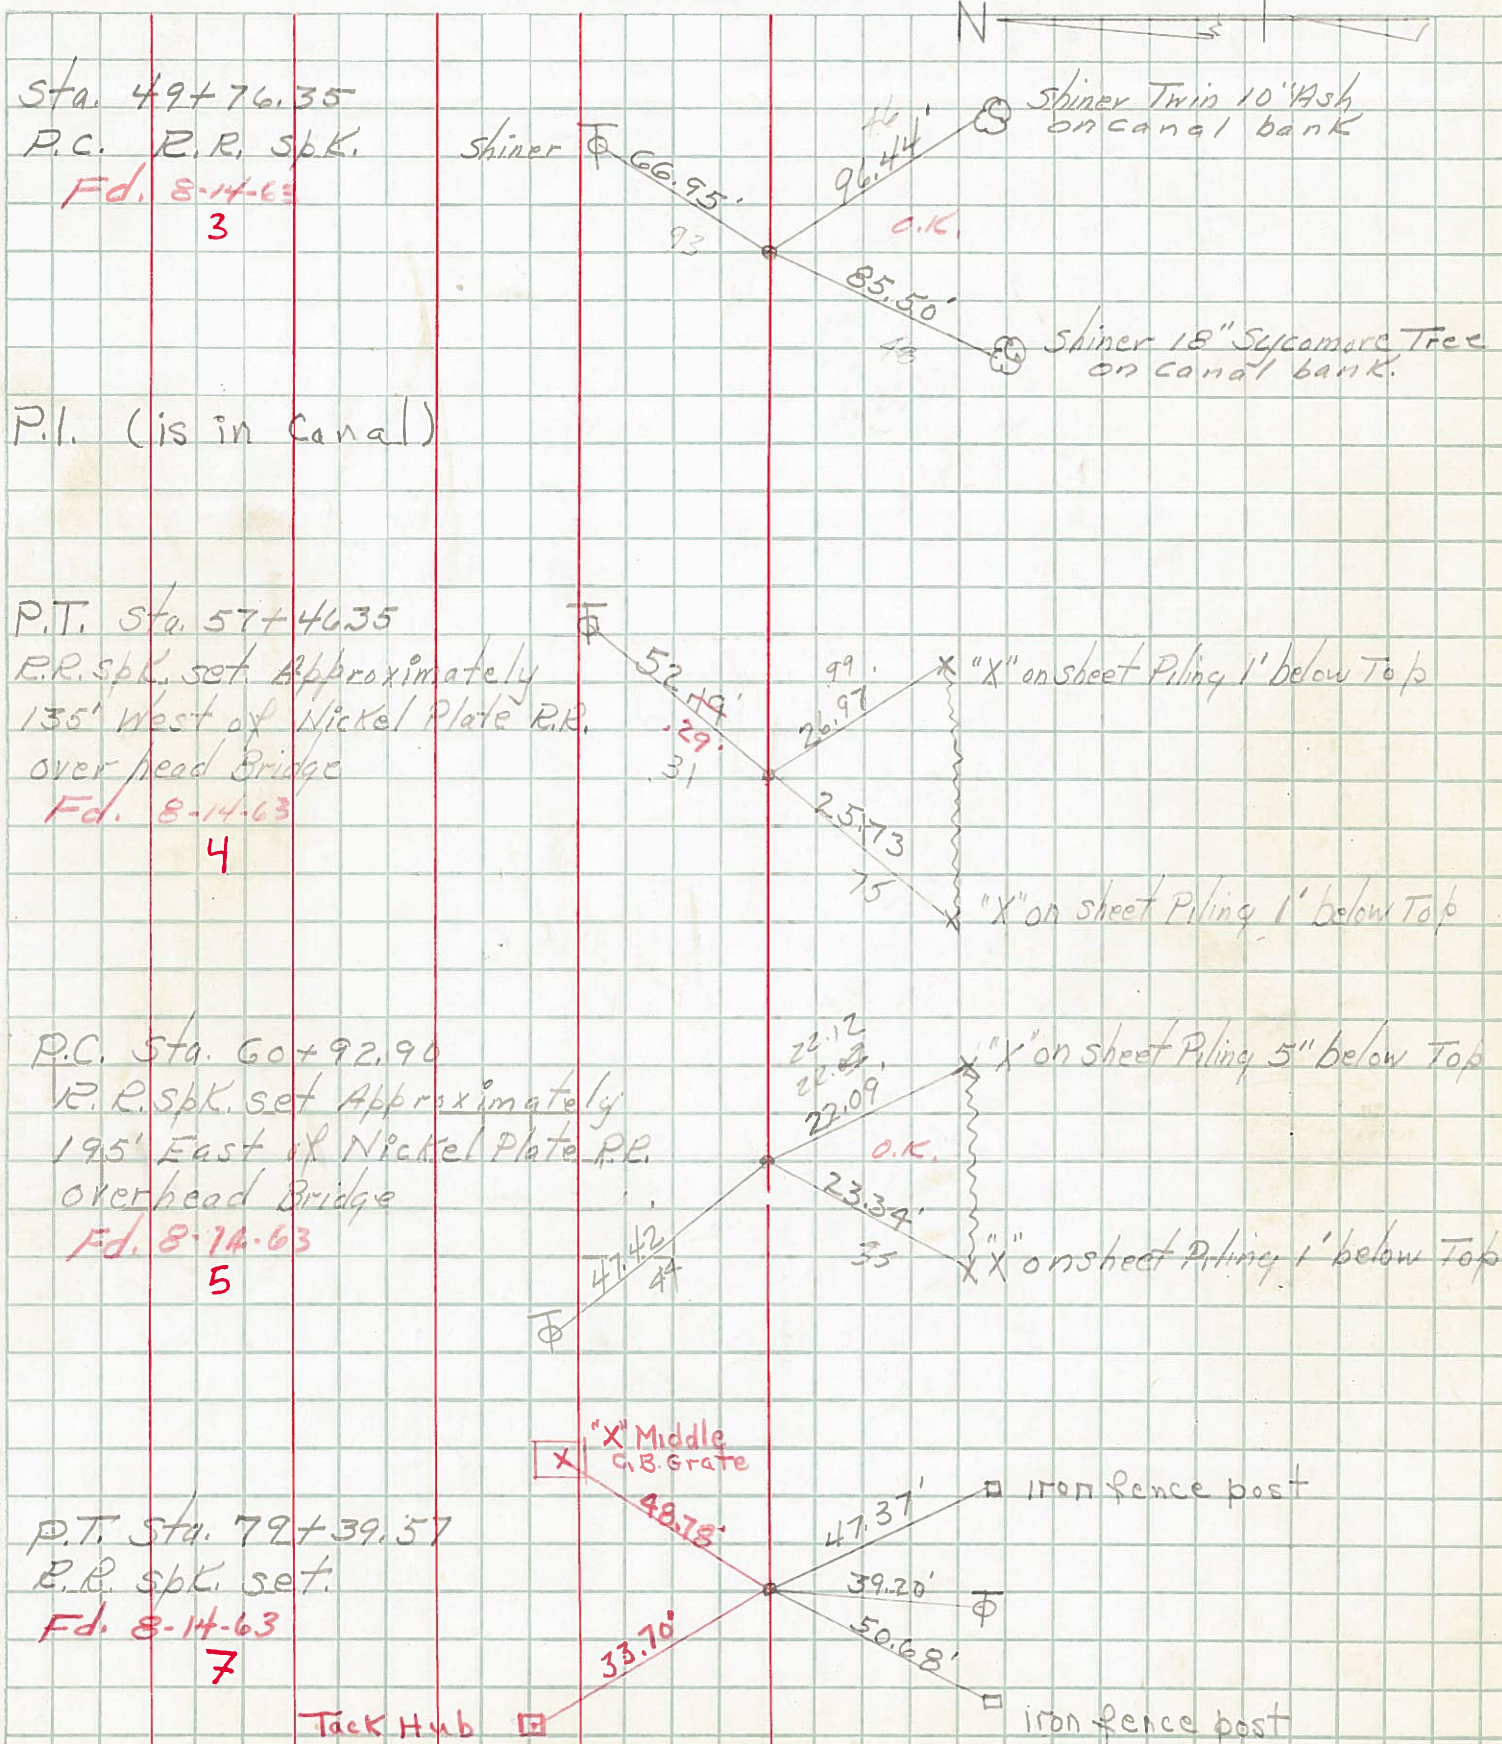 N
Sta. 49+76.35
P.C. R.R. Spk.
Fd. 8-14-63
3
Shiner
66.95'
93
46
96.44'
O.K.
85.50'
48
Shiner Twin 10" Ash
on canal bank
Shiner 18" Sycamore Tree
on canal bank.
P.I. (is in Canal)
P.T. Sta. 57+46.35
R.R. spk. set. Approximately
135' West of Nickel Plate R.R.
over head Bridge
Fd. 8-14-63
4
52.49'
.29.
.31
99.
26.97
25.73
75
"X" on sheet Piling 1' below Top
"X" on sheet Piling 1' below Top
P.C. Sta. 60+92.90
R.R. spk. set Approximately
195' East of Nickel Plate R.R.
overhead Bridge
Fd. 8-14-63
5
22.12
22.09
O.K.
23.34'
35
47.42
44
"X" on sheet Piling 5" below Top
"X" on sheet Piling 1' below Top
P.T. Sta. 79+39.57
R.R. spk. set.
Fd. 8-14-63
7
"X" Middle
C.B. Grate
48.78'
47.37'
iron fence post
39.20'
50.68'
iron fence post
33.70'
Tack Hub